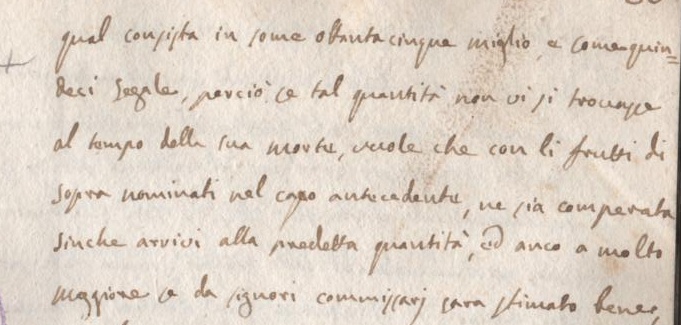 qual consista in some ottantacinque miglio, e some quin=
deci segale, perciò se tal quantità non vi si trovasse
al tempo della sua morte, vuole che con li frutti di
sopra nominati nel capo antecedente, ne sia comperata
sinche arrivi alla predetta quantità, ed anco a molto
maggiore se da signori commissarj sara stimato bene,